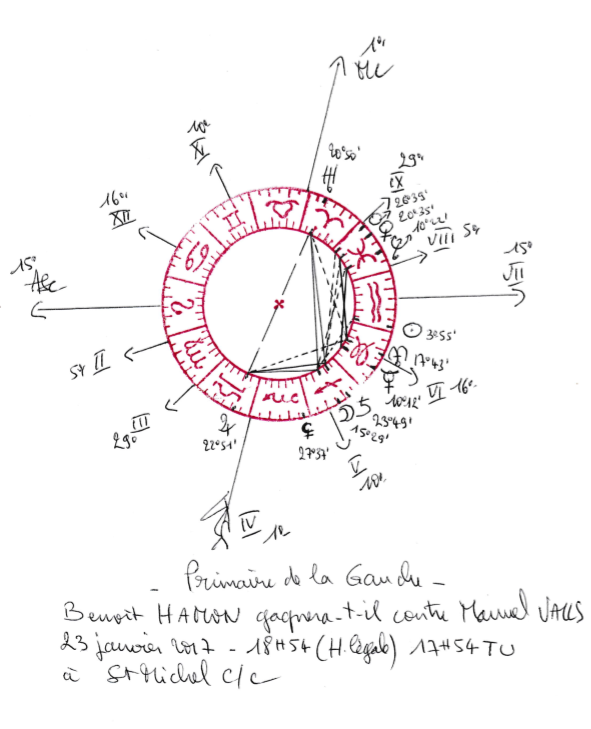 1°
MC
10°
XI
20°50'
29°
IX
28°39'
20°35'
VIII 5°
16°
XII
15°
VII
15°
Asc
3°55'
17°43'
10°12'
VI 16°
5° II
III
29°
22°51'
27°37'
23°49'
15°29'
V
10°
IV 1°
- Primaire de la Gauche -
Benoît HAMON gagnera-t-il contre Manuel VALLS
23 janvier 2017 - 18H54 (H. légale) 17H54 TU
à St Michel C/C